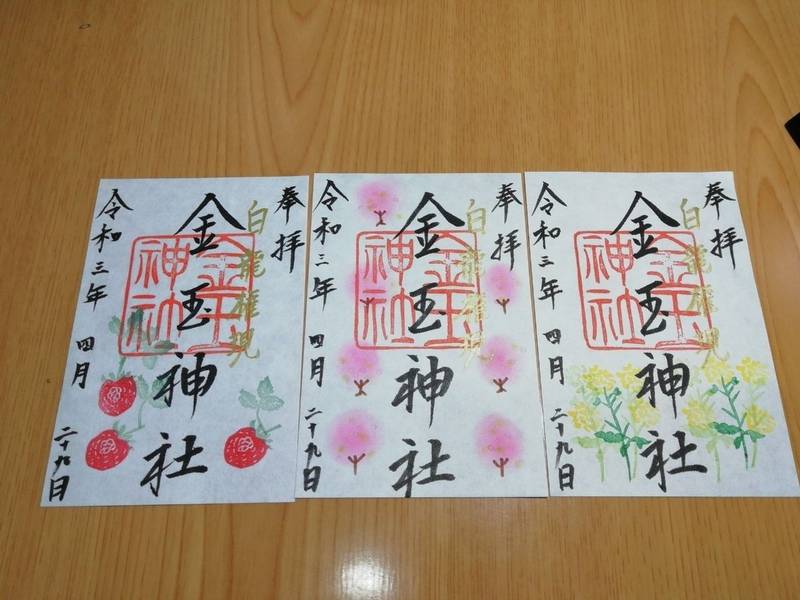 奉拝
白龍権現
金玉神社
金玉神社
令和三年 四月 二十九日
奉拝
白龍権現
金玉神社
金玉神社
令和三年 四月 二十九日
奉拝
白龍権現
金玉神社
金玉神社
令和三年 四月 二十九日